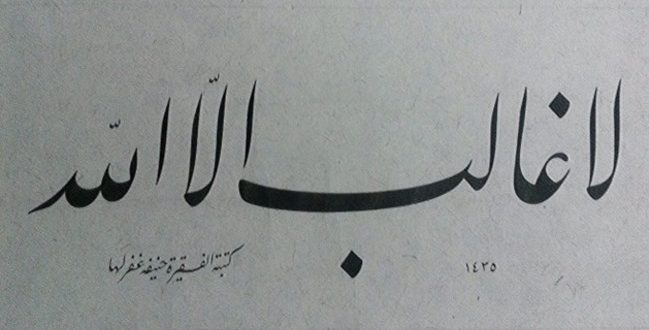 لا غالب الّا الله
١٤٣٥
كتبته الفقيرة حنيفه غفر لها